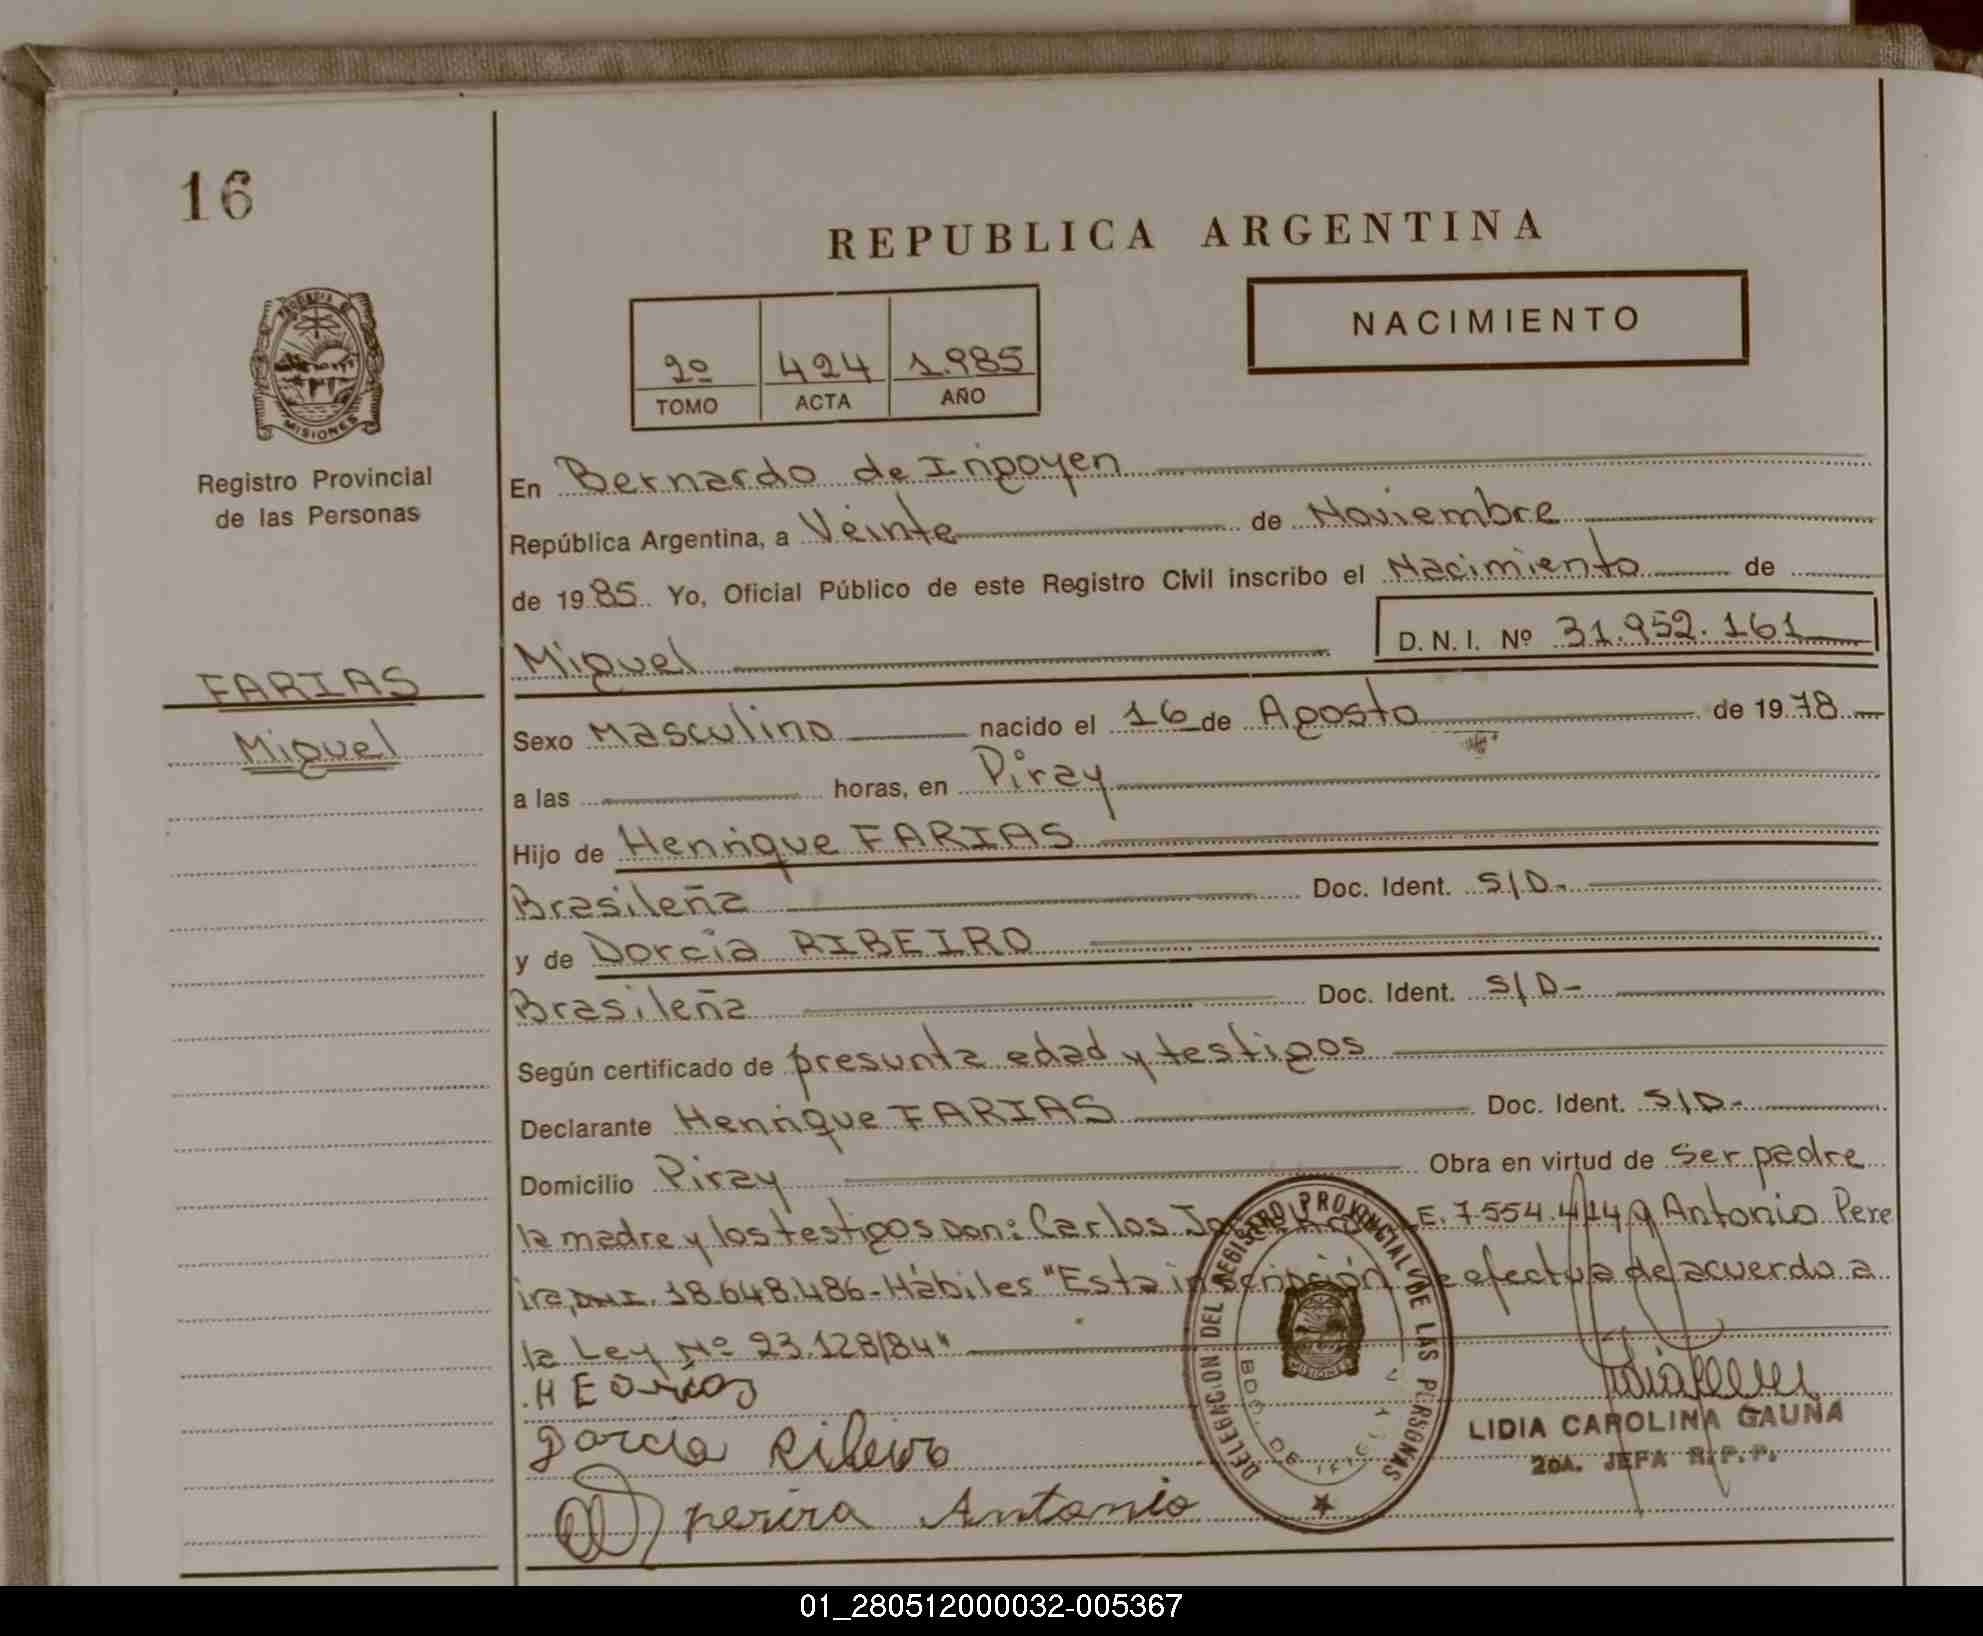 16
REPUBLICA ARGENTINA
NACIMIENTO
2º 424 1.985
TOMO ACTA AÑO
PROVINCIA DE
MISIONES
Registro Provincial
de las Personas
FARIAS
Miguel
En Bernardo de Irigoyen
República Argentina, a Veinte de Noviembre
de 1985. Yo, Oficial Público de este Registro Civil inscribo el Nacimiento de
Miguel D. N. I. Nº 31.952.161
Sexo Masculino nacido el 16 de Agosto de 1978
a las horas, en Piray
Hijo de Henrique FARIAS
Brasileña Doc. Ident. S/D-
y de Dorcia RIBEIRO
Brasileña Doc. Ident. S/D-
Según certificado de presunta edad y testigos
Declarante Henrique FARIAS Doc. Ident. S/D-
Domicilio Piray Obra en virtud de ser padre
la madre y los testigos son: Carlos L.E. 7554.414 y Antonio Pere
ira, DNI. 18.648.486- Hábiles "Esta inscripción se efectua de acuerdo a
la Ley Nº 23.128/84"
DELEGACION DEL REGISTRO PROVINCIAL DE LAS PERSONAS
BDO. DE IRIGOYEN
MISIONES
dorcia Ribeiro
pereira Antonio
LIDIA CAROLINA GAUNA
2da. JEFA R.P.P.
01_280512000032-005367